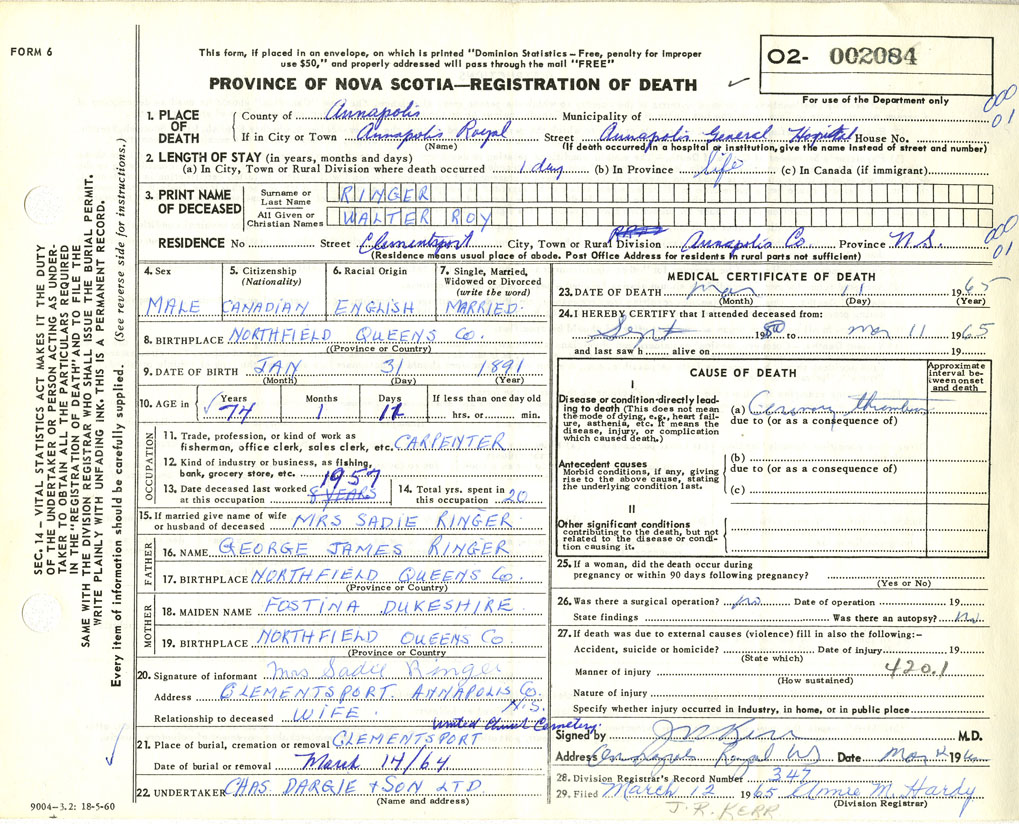 FORM 6
This form, if placed in an envelope, on which is printed "Dominion Statistics – Free, penalty for improper
use $50," and properly addressed will pass through the mail "FREE"
PROVINCE OF NOVA SCOTIA—REGISTRATION OF DEATH
O2- 002084
For use of the Department only
000
01
SEC. 14 – VITAL STATISTICS ACT MAKES IT THE DUTY
OF THE UNDERTAKER OR PERSON ACTING AS UNDER-
TAKER TO OBTAIN ALL THE PARTICULARS REQUIRED
IN THE "REGISTRATION OF DEATH" AND TO FILE THE
SAME WITH THE DIVISION REGISTRAR WHO SHALL ISSUE THE BURIAL PERMIT.
WRITE PLAINLY WITH UNFADING INK. THIS IS A PERMANENT RECORD.
Every item of information should be carefully supplied. (See reverse side for instructions.)
1. PLACE OF DEATH
County of Annapolis Municipality of
If in City or Town Annapolis Royal Street Annapolis General Hospital House No.
(Name) (If death occurred in a hospital or institution, give the name instead of street and number)
2. LENGTH OF STAY (in years, months and days)
(a) In City, Town or Rural Division where death occurred 1 day (b) In Province life (c) In Canada (if immigrant)
3. PRINT NAME OF DECEASED
Surname or Last Name RINGER
All Given or Christian Names WALTER ROY
000
01
RESIDENCE No Street Clementsport City, Town or Rural Division Annapolis Co. Province N.S.
(Residence means usual place of abode. Post Office Address for residents in rural parts not sufficient)
4. Sex
MALE
5. Citizenship (Nationality)
CANADIAN
6. Racial Origin
ENGLISH
7. Single, Married, Widowed or Divorced (write the word)
MARRIED.
8. BIRTHPLACE NORTHFIELD QUEENS Co.
((Province or Country)
9. DATE OF BIRTH JAN 31 1891
(Month) (Day) (Year)
10. AGE in Years Months Days If less than one day old
74 1 11 hrs. or min.
OCCUPATION
11. Trade, profession, or kind of work as
fisherman, office clerk, sales clerk, etc. CARPENTER
12. Kind of industry or business, as fishing,
bank, grocery store, etc.
13. Date deceased last worked at this occupation 1957 8 YEARS
14. Total yrs. spent in this occupation 20
15. If married give name of wife
or husband of deceased MRS SADIE RINGER
FATHER
16. NAME GEORGE JAMES RINGER
17. BIRTHPLACE NORTHFIELD QUEENS Co.
(Province or Country)
MOTHER
18. MAIDEN NAME FOSTINA DUKESHIRE
19. BIRTHPLACE NORTHFIELD QUEENS Co
(Province or Country)
20. Signature of informant Mrs Sadie Ringer
Address CLEMENTSPORT ANNAPOLIS Co.
N.S.
Relationship to deceased WIFE.
United Church Cemetery.
21. Place of burial, cremation or removal CLEMENTSPORT
Date of burial or removal March 14/64
22. UNDERTAKER CHAS. DARGIE + SON LTD
(Name and address)
9004–3.2: 18-5-60
MEDICAL CERTIFICATE OF DEATH
23. DATE OF DEATH Mar 11 1965
(Month) (Day) (Year)
24. I HEREBY CERTIFY that I attended deceased from:
Sept 19 to Mar 11 1965
and last saw h alive on 19
CAUSE OF DEATH
Approximate interval between onset and death
I
Disease or condition directly lead-
ing to death (This does not mean
the mode of dying, e.g., heart fail-
ure, asthenia, etc. It means the
disease, injury, or complication
which caused death.)
(a) Coronary thrombosis
due to (or as a consequence of)
Antecedent causes
Morbid conditions, if any, giving
rise to the above cause, stating
the underlying condition last.
(b)
due to (or as a consequence of)
(c)
II
Other significant conditions
contributing to the death, but not
related to the disease or condi-
tion causing it.
25. If a woman, did the death occur during
pregnancy or within 90 days following pregnancy?
(Yes or No)
26. Was there a surgical operation? No Date of operation 19
State findings Was there an autopsy? No
27. If death was due to external causes (violence) fill in also the following:–
Accident, suicide or homicide? Date of injury 19
(State which)
Manner of injury 420.1
(How sustained)
Nature of injury
Specify whether injury occurred in industry, in home, or in public place
Signed by J R Kerr M.D.
Address Annapolis Royal NS Date Mar 12 196
28. Division Registrar's Record Number 347
29. Filed March 12 1965 Annie M. Hardy
(Division Registrar)
J. R. KERR